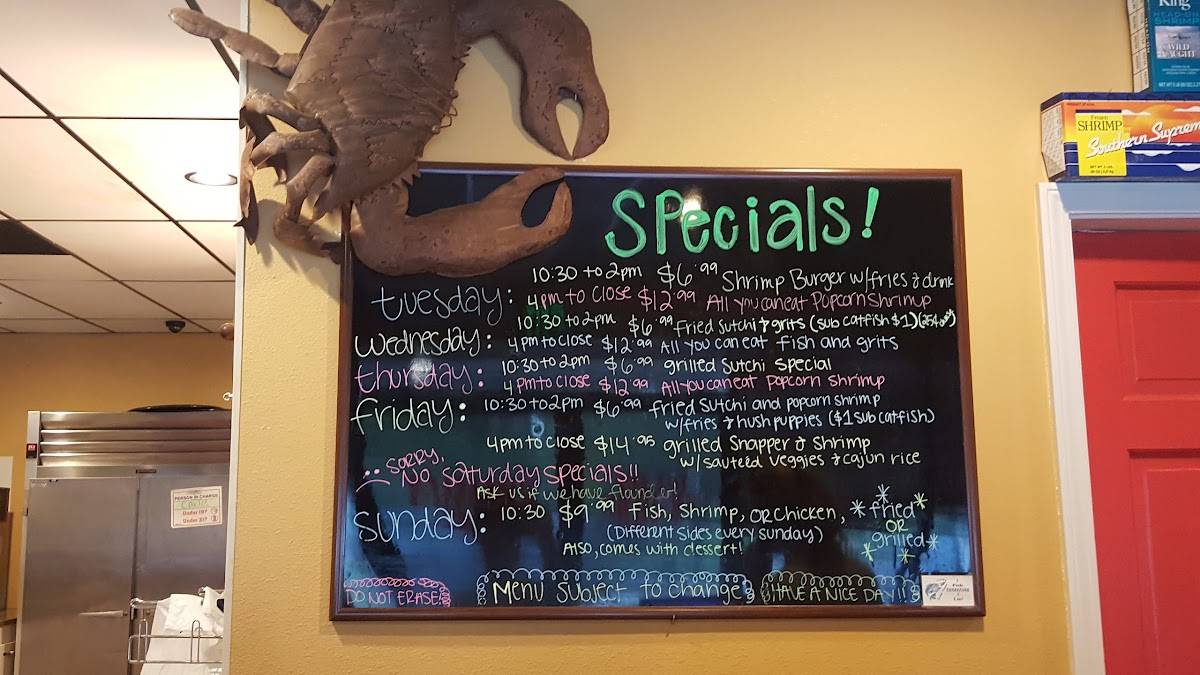 Specials!
Tuesday: 10:30 to 2pm $6.99 Shrimp Burger w/fries & drink
4pm to close $12.99 All you can eat Popcorn Shrimp
Wednesday: 10:30 to 2pm $6.99 fried Sutchi & grits (sub catfish $1)
4pm to close $12.99 All you can eat fish and grits
Thursday: 10:30 to 2pm $6.99 grilled Sutchi Special
4 pm to close $12.99 All you can eat Popcorn Shrimp
Friday: 10:30 to 2pm $6.99 fried Sutchi and popcorn shrimp
w/fries & hushpuppies ($1 sub catfish)
4pm to close $14.95 grilled Snapper & Shrimp
w/sauteéd veggies & cajun rice
Sorry,
No Saturday Specials!!
Ask us if we have flounder!
Sunday: 10:30 $9.99 Fish, Shrimp, or Chicken, *fried*
or
grilled*
(Different sides every Sunday)
Also, comes with dessert!
DO NOT ERASE!
Menu subject to change
HAVE A NICE DAY!!
King
HEAD-ON
SHRIMP
WILD
CAUGHT
Frozen
SHRIMP
Southern Supreme
PERSON IN CHARGE